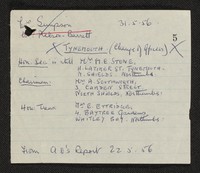 Simpson 31.5.56
5
X TYNEMOUTH (Change of Officers) X
Hon. Sec. is still Mr H. E. STONE,
LATIMER ST. TYNEMOUTH.
N. SHIELDS, Northumb.
Chairman Mr A. SOUTHWORTH,
3, CAMDEN STREET
NORTH SHIELDS, Northumb.
Hon. Treas.
4, BAYTREE GARDENS
WHITLEY BAY, Northumb.
From A E's Report 22.5.56